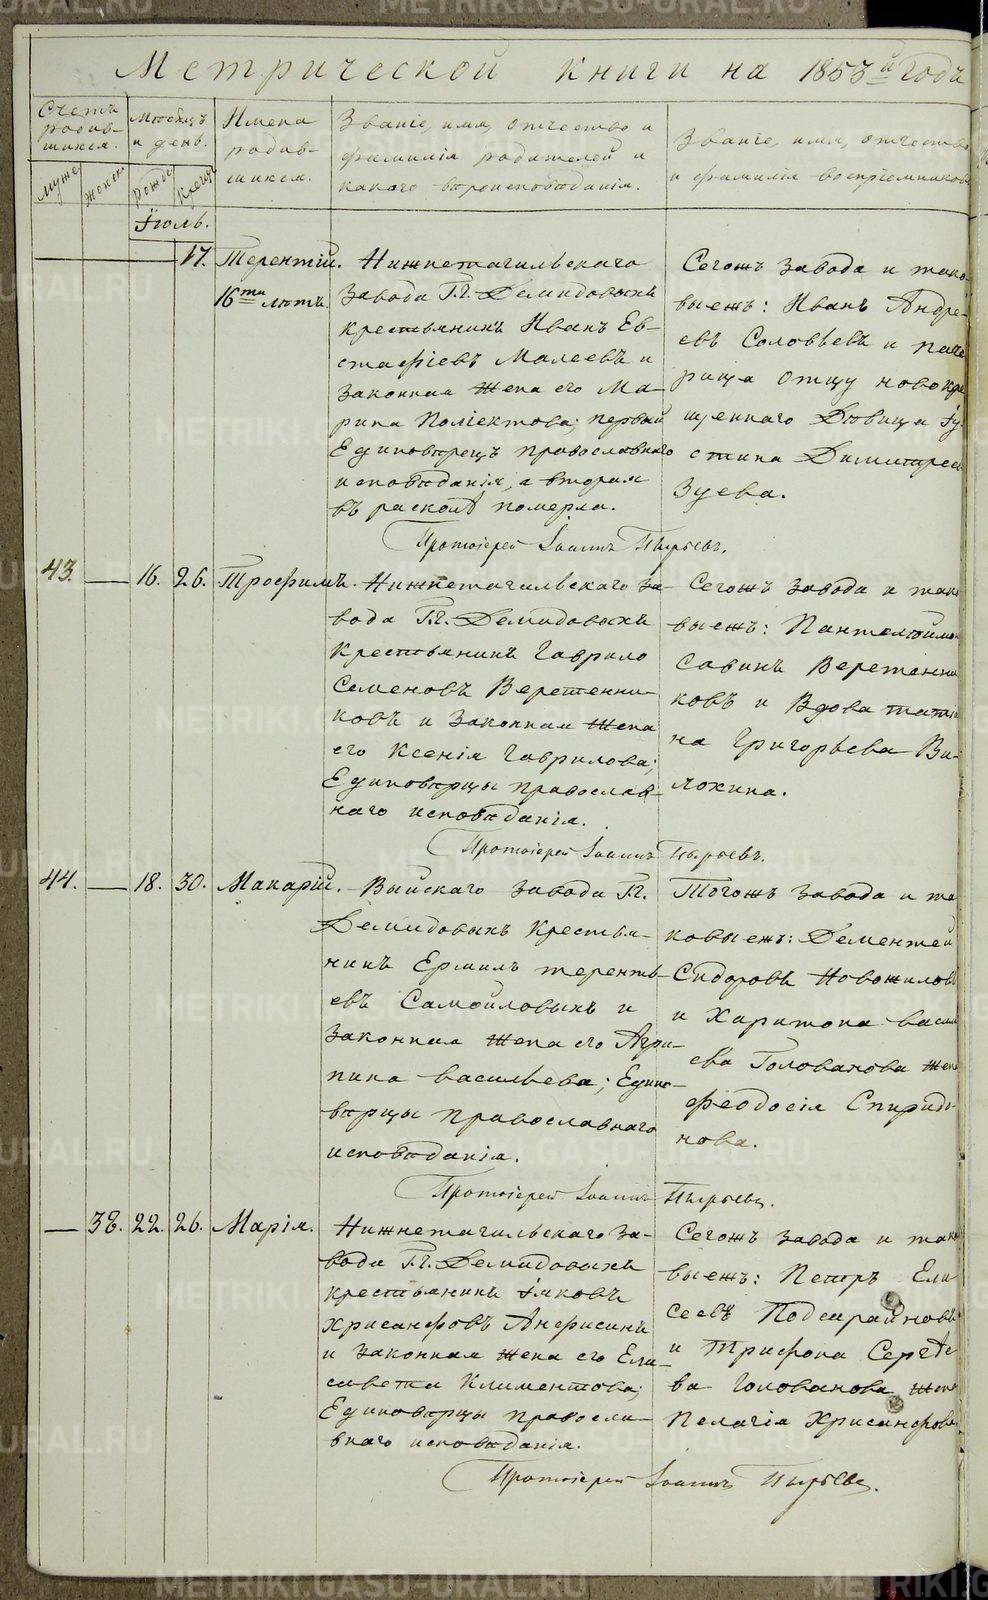 Метрической книги на 1853й годъ
Счетъ родив-
шихся.
Муже
женск
Мѣсяцъ
и день.
Рожде
Крещ
Имена
родив-
шихся.
Званіе, имя, отчество и
фамилія родителей и
какого вѣроисповѣданія.
Званіе, имя, отчество
и фамилія воспріемниковъ
Іюль.
17. Терентій.
16ти лѣтъ.
Нижнетагильскаго
завода Г.г. Демидовыхъ
крестьянинъ Иванъ Ев-
стафіевъ Малеевъ и
законная жена его Ма-
рина Поліектова; первый
Единовѣрецъ православнаго
исповѣданія, а вторая
въ расколѣ померла.
Сегожъ завода и тако
выежъ: Иванъ Андре-
евъ Соловьевъ и паче
рица отцу новокре
щеннаго Дѣвица Іу
стина Димитрев
Зуева.
Протоіерей Іоаннъ Пырьевъ.
43. — 16. 26. Трофимъ.
Нижнетагильскаго за
вода Г.г. Демидовыхъ
крестьянинъ Гаврило
Семеновъ Веретенни-
ковъ и законная жена
его Ксенія Гаврилова;
Единовѣрцы православ-
наго исповѣданія.
Сегожъ завода и тако
выежъ: Пантелеймон
Савинъ Веретенни
ковъ и Вдова татья
на Григорьева Ви-
лохина.
Протоіерей Іоаннъ Пырьевъ.
44. — 18. 30. Макарій.
Выйскаго завода Г.г.
Демидовыхъ крестья-
нинъ Ермилъ терентьь
евъ Самойловыхъ и
законная жена его Агри-
пина васильева; Едино-
вѣрцы православнаго
исповѣданія.
Тогожъ завода и та
ковыежъ: Дементей
Сидоровъ Новожиловъ
и Харитона васил
ева Голованова жена
феодосія Спиридо
нова.
Протоіерей Іоаннъ Пырьевъ.
— 38. 22. 26. Марія.
Нижнетагильскаго за-
вода Г.г. Демидовыхъ
крестьянинъ Іаковъ
Хрисанфовъ Анфисинъ
и законная жена его Ели-
савета Климентова;
Единовѣрцы правосла-
внаго исповѣданія.
Сегожъ завода и тако
выежъ: Петръ Ели
сеевъ Подсарайновъ
и Трифона Сергѣе
ва Голованова жена
Пелагія Хрисанфова.
Протоіерей Іоаннъ Пырьевъ.
METRIKI.GASO-URAL.RU